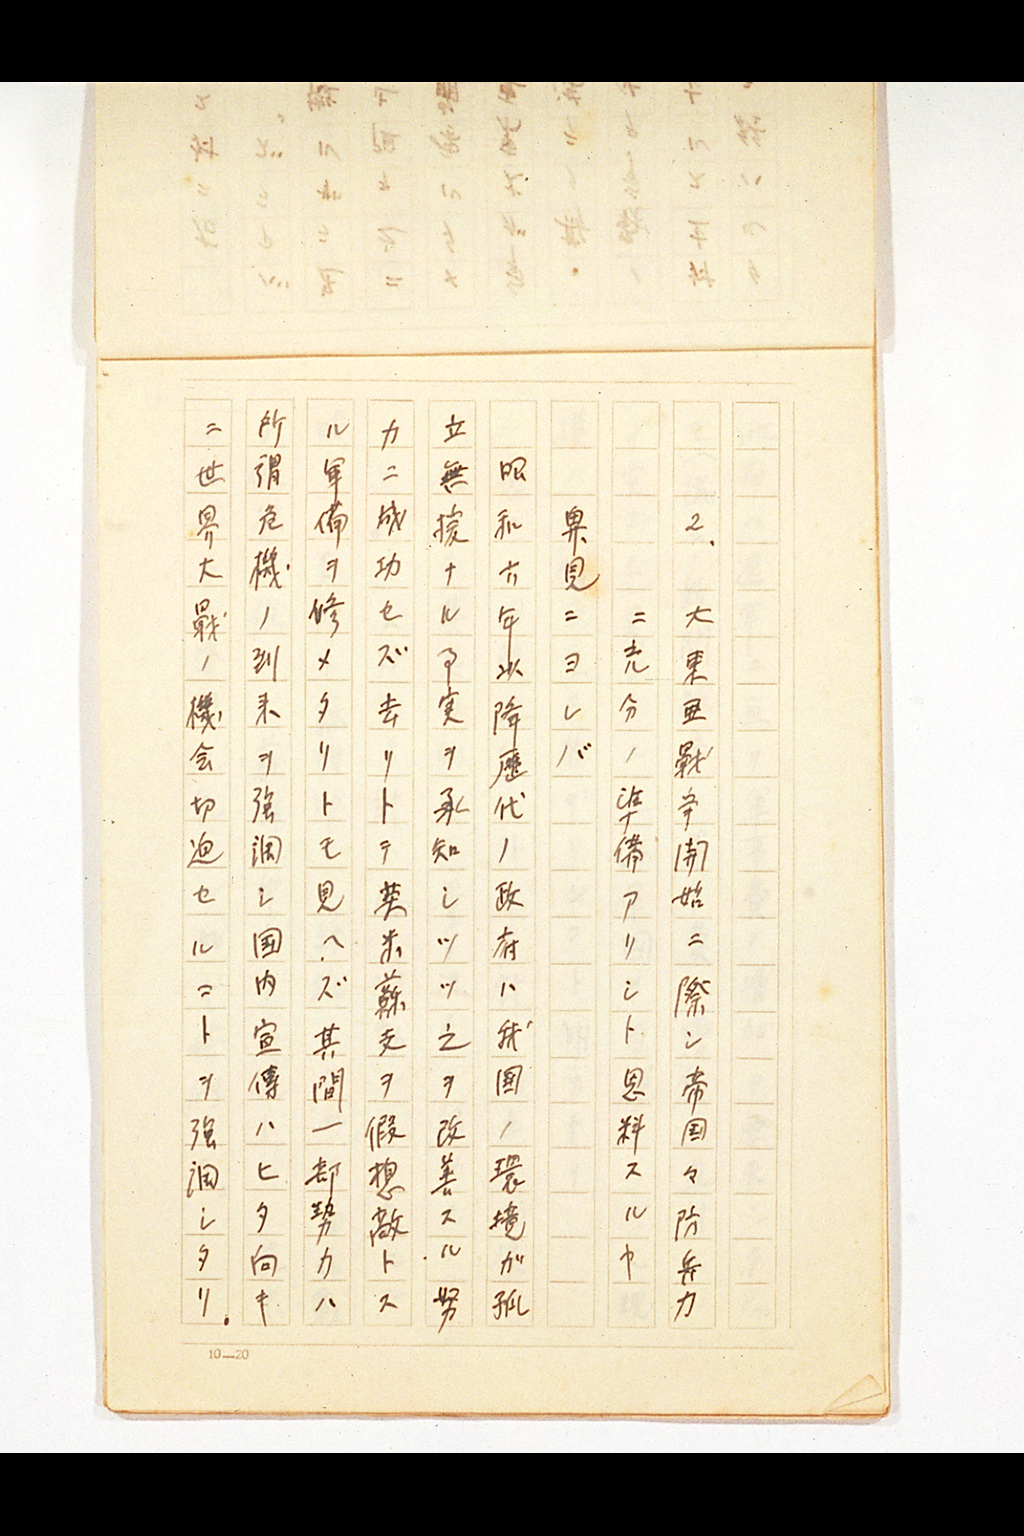 2、大東亜戰争開始ニ際シ帝国々防兵力
ニ充分ノ準備アリシト思料スルヤ
異見ニヨレバ
昭和六年以降歴代ノ政府ハ我国ノ環境ガ孤
立無援ナル事実ヲ承知シツツ之ヲ改善スル努
力ニ成功セズ去リトテ英米蘇支ヲ假想敵トス
ル軍備ヲ修メタリトモ見ヘズ其間一部勢力ハ
所謂危機ノ到来ヲ強調シ国内宣傳ハヒタ向キ
ニ世界大戰ノ機会切迫セルコトヲ強調シタリ.
10—20